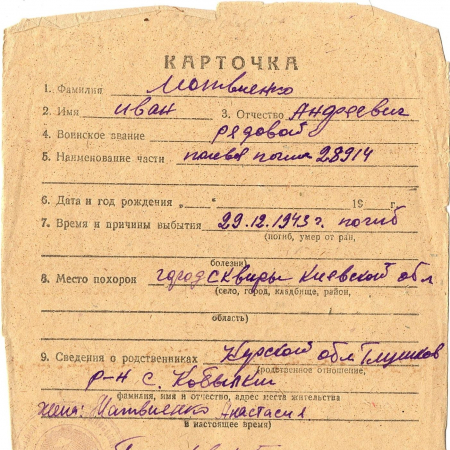 КАРТОЧКА
1. Фамилия Матвиенко
2. Имя иван 3. Отчество Андреевич
4. Воинское звание рядовой
5. Наименование части полевая почта 28914
6. Дата и год рождения „ " 19 г.
7. Время и причины выбытия 29.12.1943 г. погиб
(погиб, умер от ран,
болезни)
8. Место похорон город Сквиры Киевской обл
(село, город, кладбище, район,
область)
9. Сведения о родственниках Курской обл Глушков
(родственное отношение,
р-н с. Кобылки
фамилия, имя и отчество, адрес места жительства
жена: Матвиенко Анастасия
в настоящее время)